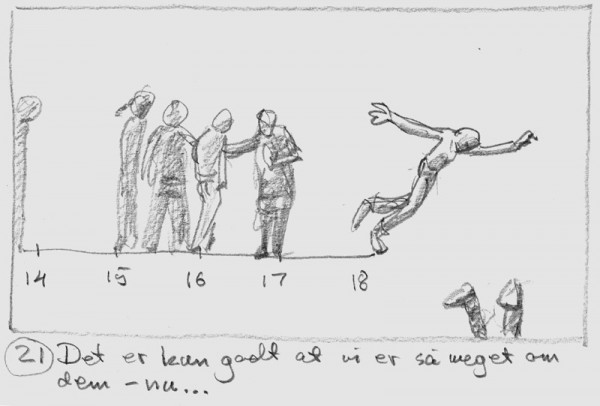 14 15 16 17 18
21) Det er kun godt at vi er så meget om
dem - nu...